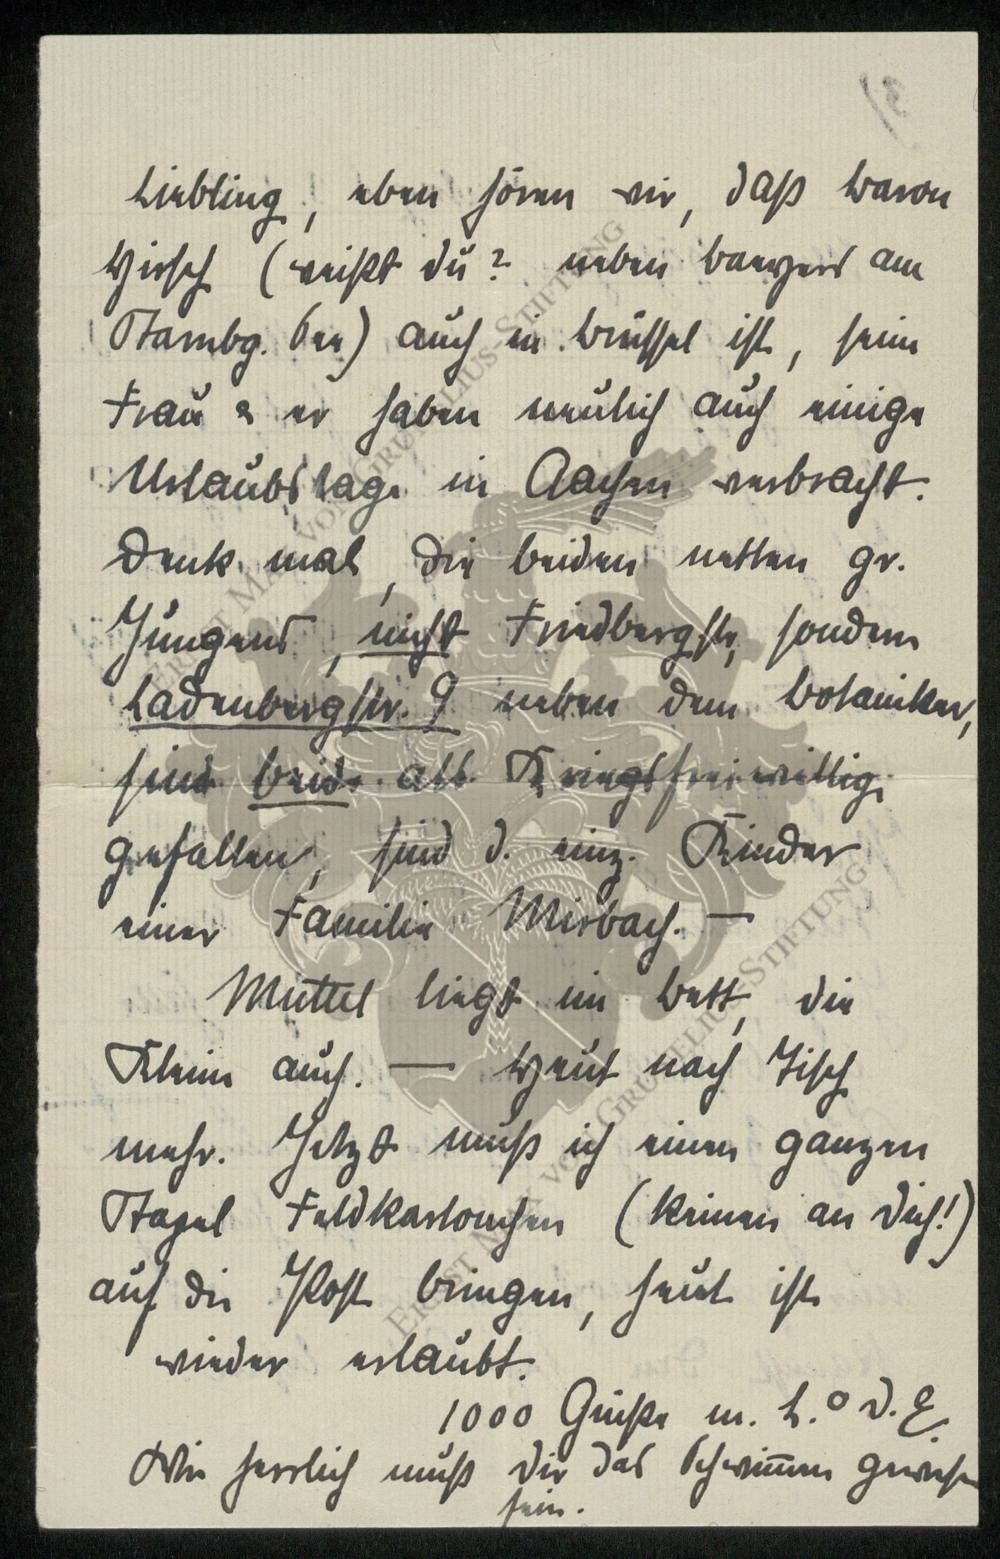 Liebling, eben hören wir, daß Baron
Hirsch (weißt du? neben Baeyers am
Starnbg. See) auch in Brüssel ist, seine
Frau & er haben neulich auch einige
Urlaubstage in Aachen verbracht.
Denk mal, die beiden netten gr.
Jungens, nicht Friedbergstr, sondern
Ladenbergstr. 9 neben dem Botaniker,
sind beide als Kriegsfreiwillige
gefallen, sind d. einz. Kinder
einer Familie Mirbach. —
Muttel liegt im Bett, die
Kleine auch. — Heut nach Tisch
mehr. Jetzt muß ich einen ganzen
Stapel Feldkartonchen (keinen an Dich!)
auf die Post bringen, heut ist
wieder erlaubt.
1000 Grüße m. L. d. E.
Wie herrlich muß dir das Schwim̅en gewesen
sein.
ERNST MAX VON GRUNELIUS-STIFTUNG
ERNST MAX VON GRUNELIUS-STIFTUNG